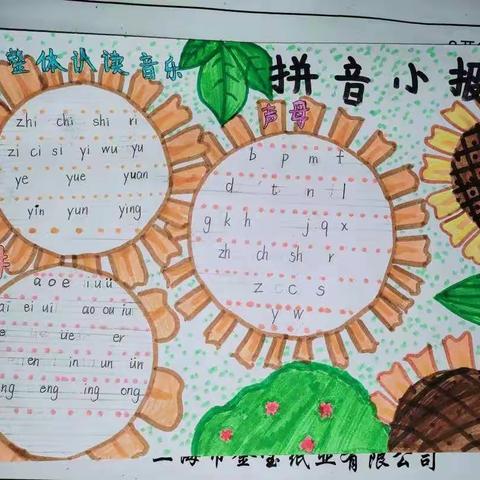 拼音小报
整体认读音乐
zhi chi shi ri
zi ci si yi wu yu
ye yue yuan
yin yun ying
声母
b p m f
d t n l
g k h j q x
zh ch sh r
z c s
y w
a o e i u ü
ai ei ui ao ou iu
üe er
en in un ün
ng eng ing ong
纸业有限公司